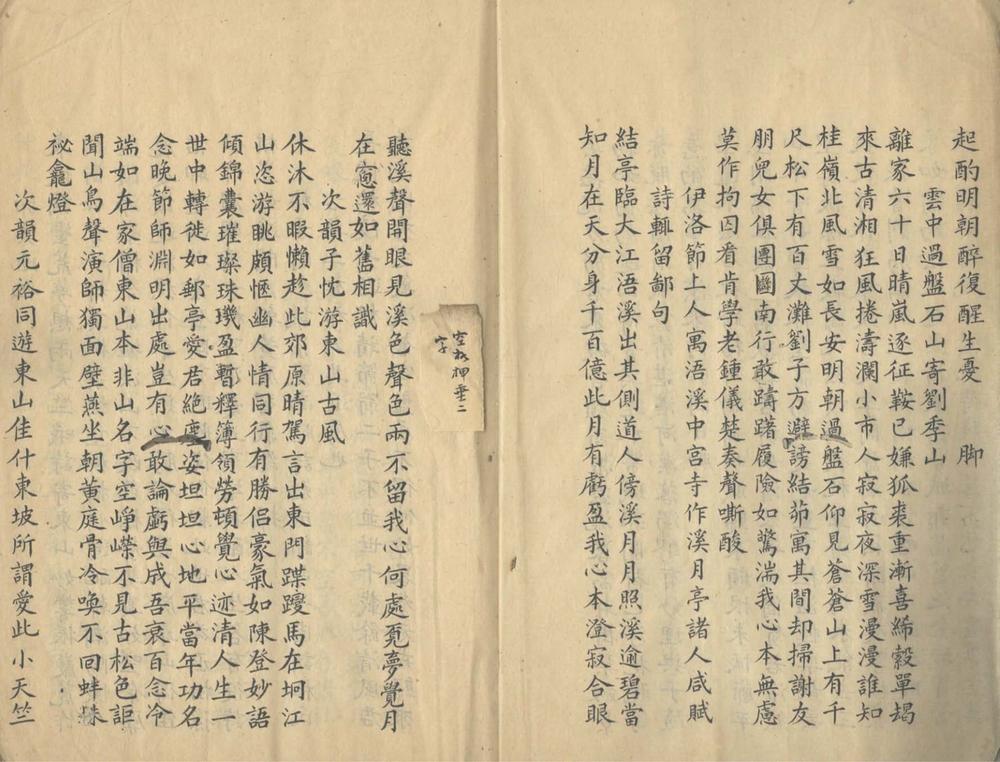 起酌明朝醉復醒生憂　脚
雲中過盤石山寄劉季山
離家六十日晴嵐逐征鞍已嫌狐裘重漸喜絺縠單朅
來古清湘狂風捲濤瀾小市人寂寂夜深雪漫漫誰知
桂嶺北風雪如長安明朝過盤石仰見蒼蒼山上有千
尺松下有百丈灘劉子方避謗結茆寓其間却掃謝友
朋兒女俱團圞南行敢躊躇履險如驚湍我心本無慮
莫作拘囚看肯學老鍾儀楚奏聲嘶酸
伊洛節上人寓浯溪中宮寺作溪月亭諸人咸賦
詩輒留鄙句
結亭臨大江浯溪出其側道人傍溪月月照溪逾碧當
知月在天分身千百億此月有虧盈我心本澄寂合眼
聽溪聲開眼見溪色聲色兩不留我心何處覓夢覺月
在窻還如舊相識
次韻子忱游東山古風
休沐不暇懶趁此郊原晴駕言出東門蹀躞馬在坰江
山恣游眺頗愜幽人情同行有勝侶豪氣如陳登妙語
傾錦囊璀璨珠璣盈暫釋簿領勞頓覺心迹清人生一
世中轉徙如郵亭愛君絕塵姿坦坦心地平當年功名
念晚節師淵明出處豈有心敢論虧與成吾衰百念冷
端如在家僧東山本非山名字空崢嶸不見古松色詎
聞山鳥聲演師獨面壁燕坐朝黃庭骨冷喚不回蚌蛛
祕龕燈
次韻元裕同遊東山佳什東坡所謂愛此小天竺
空格押垂二
字